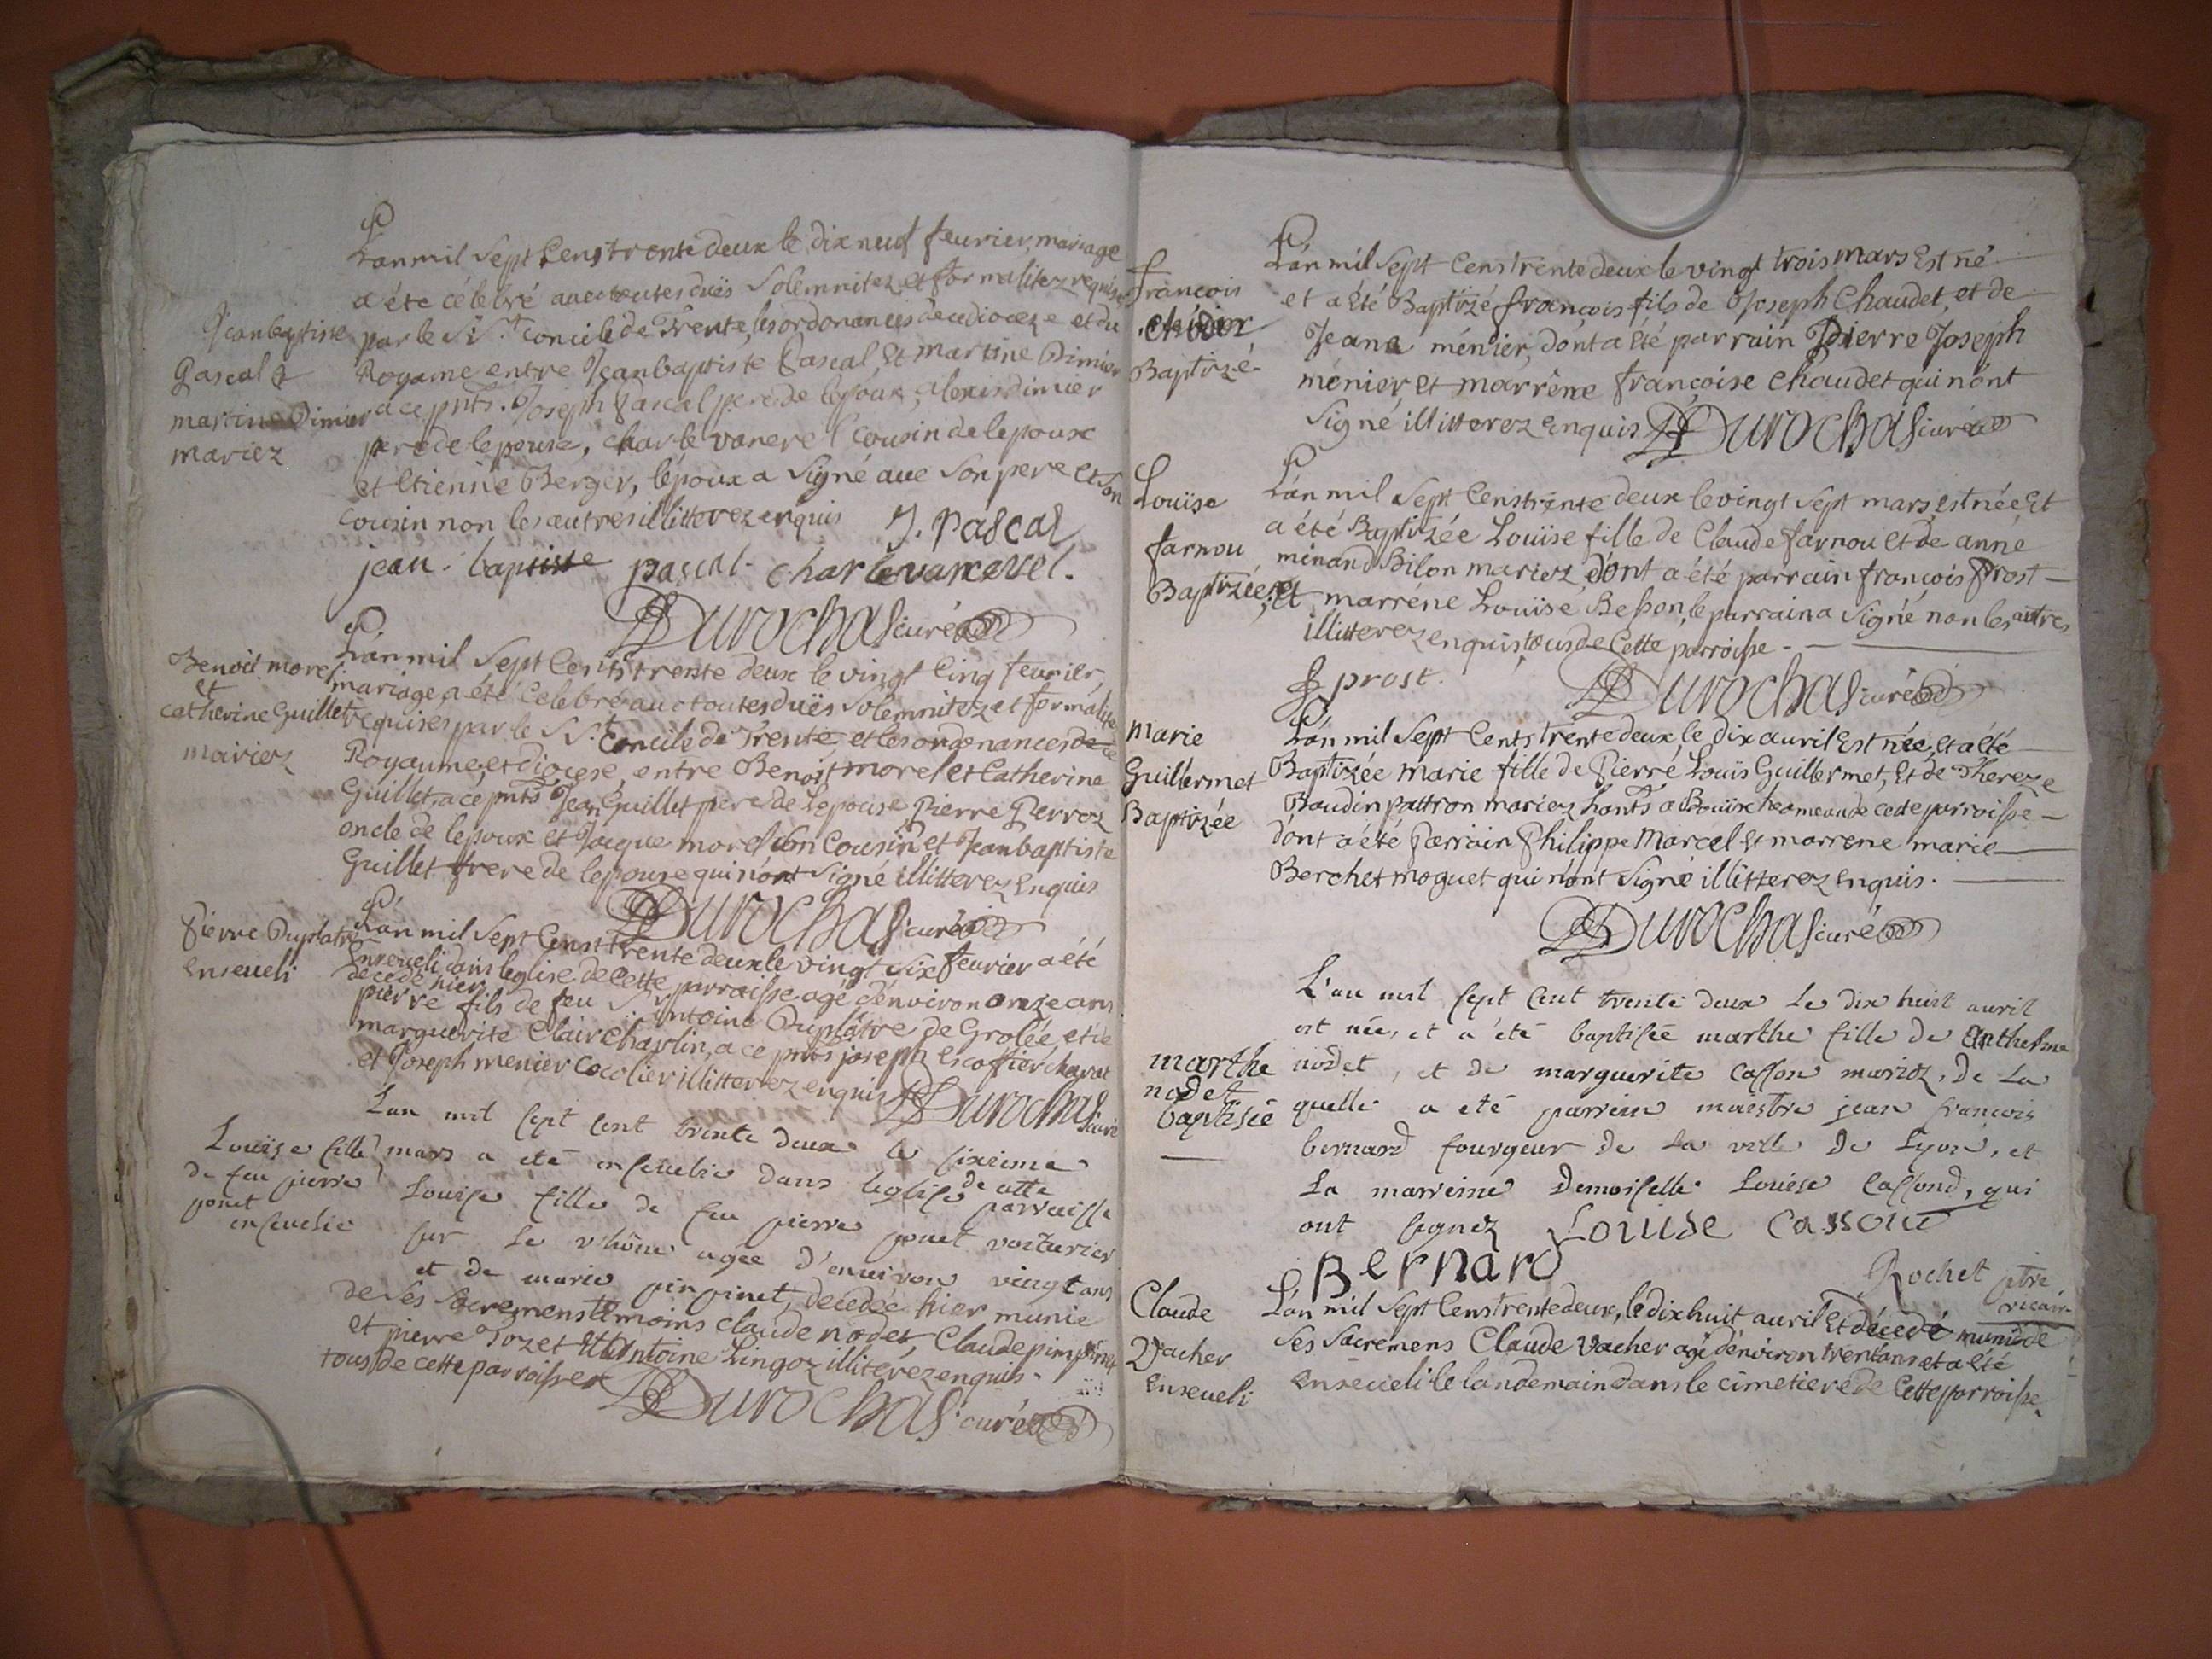 L'an mil sept cens trente deux le dix neuf feurier, mariage
a été célébré auec toutes duës solemnitez et formalitez requises
Jean baptiste
Pascal &
martine Dimier
mariez
par le St. concile de Trente, les ordonances de ce dioceze et du
Royame entre Jean baptiste Pascal, et martine Dimier
a ce pnts. Joseph Pascal pere de lepoux, alexis dimier
pere de lepouse, charle vanerel cousin de lepoux
et Etienne Berger, lépoux a signé auec son pere et son
cousin non les autres illitterez enquis J. Pascal
jean. baptiste pascal. charle vanerel.
Durochas curé
L'an mil sept cents trente deux le vingt cinq feurier,
Benoit morel
et
catherine Guillet
mariez
mariage a été celebré auec toutes duës solemnitez et formalité
requises par le St. Concile de Trente, et les ordonances de ce
Royaume et diocese, entre Benoit morel et Catherine
Guillet, a ce pnts Jean Guillet pere de Lepouse, Pierre Perroz
oncle de lepoux et Jacque morel son Cousin et Jean baptiste
Guillet frere de lepouse qui n'ont signé illitterez enquis
Durochas curé
Pierre Duplatre
enseueli
L'an mil sept cens trente deux le vingt six feurier a été
Enseueli dans leglise de cette parroisse agé dénviron onze ans
decedé hier
pierre fils de feu Sr. Antoine Duplâtre de Grolée, et de
marguerite Clair charlin, a ce pnts joseph escoffier
et Joseph menier illitterez enquis Durochas curé
L'an mil sept cent trente deux le sixieme
Louise fille
de feu pierre
ponet
enseuelie
mars a eté enseuelie dans leglise de cette parroisse
Louise fille de feu pierre ponet voiturier
sur le rhône agée d'enuiron vingt ans
et de marie pin pinet, decedée hier munie
de ses sacremens temoins claude nodet, Claude pimpinet
et pierre Jozet et Antoine Lingoz illitérez enquis.
tous de cette parroisse Durochas curé
L'an mil sept cens trente deux le vingt trois mars Est né
françois
Baptizé
et a été Baptizé françois fils de Joseph Chaudet, et de
Jeane ménier, dont a été parrain Pierre Joseph
menier, et marréne françoise chaudet qui n'ont
signé illitterez enquis Durochas curé
Louïse
farnou
Baptizée
L'an mil sept cens trente deux le vingt sept mars, est née et
a été Baptizée Louïse fille de Claude farnou et de anne
minand Bilon mariez dont a été parrain françois Prost
et marréne Louïse Besson, le parrain a signé non les autres
illitterez enquis tous de cette parroisse.
f prost. Durochas curé
marie
Guillermet
Baptizée
L'an mil sept cents trente deux, le dix auril Est née, et a été
Baptizée marie fille de Pierre Louïs Guillermet, et de Thereze
Baudin pattron mariez de cette parroisse
dont a été Parrain Philippe Marcel et marrene marie
Berchet moguet qui n'ont signé illitterez enquis.
Durochas curé
L'an mil sept cent trente deux le dix huit auril
est née, et a été baptisée marthe fille de Anthelme
marthe
nodet
baptisée
nodet, et de marguerite casson mariez, de La
quelle a eté parrein maistre jean françois
bernard fourgeur de La ville De Lyon, et
La marreine Demoiselle Louise Cassond, qui
ont signez Louise Casson
Bernard
Rochet ptre
vicair
Claude
Vacher
enseueli
L'an mil sept Cens trente deux, le dix huit auril Est décedé muni de
ses sacremens Claude Vacher agé dénviron trent'ans et a été
enseueli le landemain dans le cimetiere de Cette parroisse.